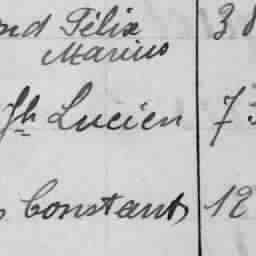 nd Félix 38
Marius
Jh Lucien 73
Constant 12